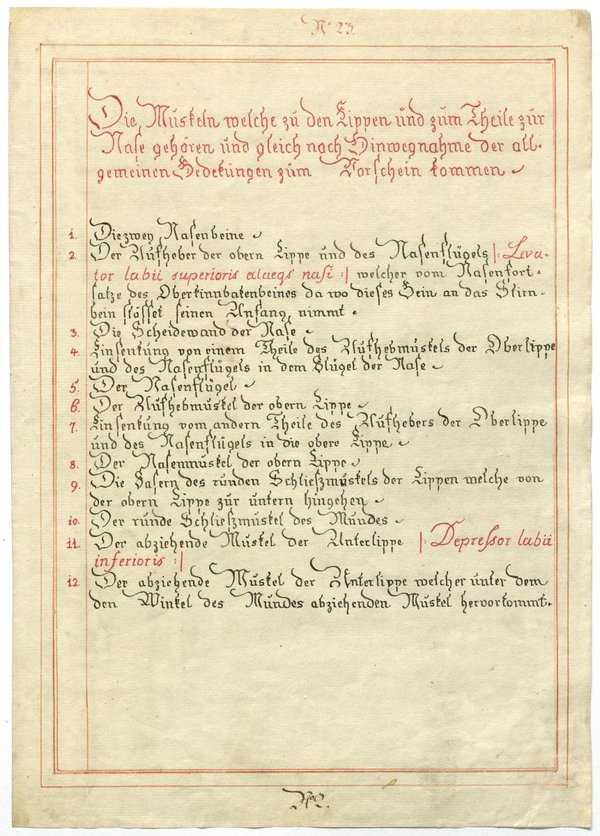 No 23.
Die Muskeln welche zu den Lippen und zum Theile zur
Nase gehören und gleich nach Hinwegnahme der all-
gemeinen Bedekungen zum Vorschein kommen
1. Die zwey Nasenbeine
2. Der Aufheber der obern Lippe und des Nasenflügels |: Leva-
tor labii superioris alaeqs nasi :| welcher vom Nasenfort-
satze des Oberkinnbakenbeines da wo dieses Bein an das Stirn-
bein stösset seinen Anfang nimmt
3. Die Scheidewand der Nase
4. Einsenkung von einem Theile des Aufhebmuskels der Oberlippe
und des Nasenflügels in dem Flügel der Nase
5. Der Nasenflügel
6. Der Aufhebmuskel der obern Lippe
7. Einsenkung vom andern Theile des Aufhebers der Oberlippe
und des Nasenflügels in die obere Lippe
8. Der Nasenmuskel der obern Lippe
9. Die Fasern des runden Schließmuskels der Lippen welche von
der obern Lippe zur untern hingehen
10. Der runde Schließmuskel des Mundes
11. Der abziehende Muskel der Unterlippe |: Depressor labii
inferioris :|
12. Der abziehende Muskel der Unterlippe welcher unter dem
den Winkel des Mundes abziehenden Muskel hervorkommt.